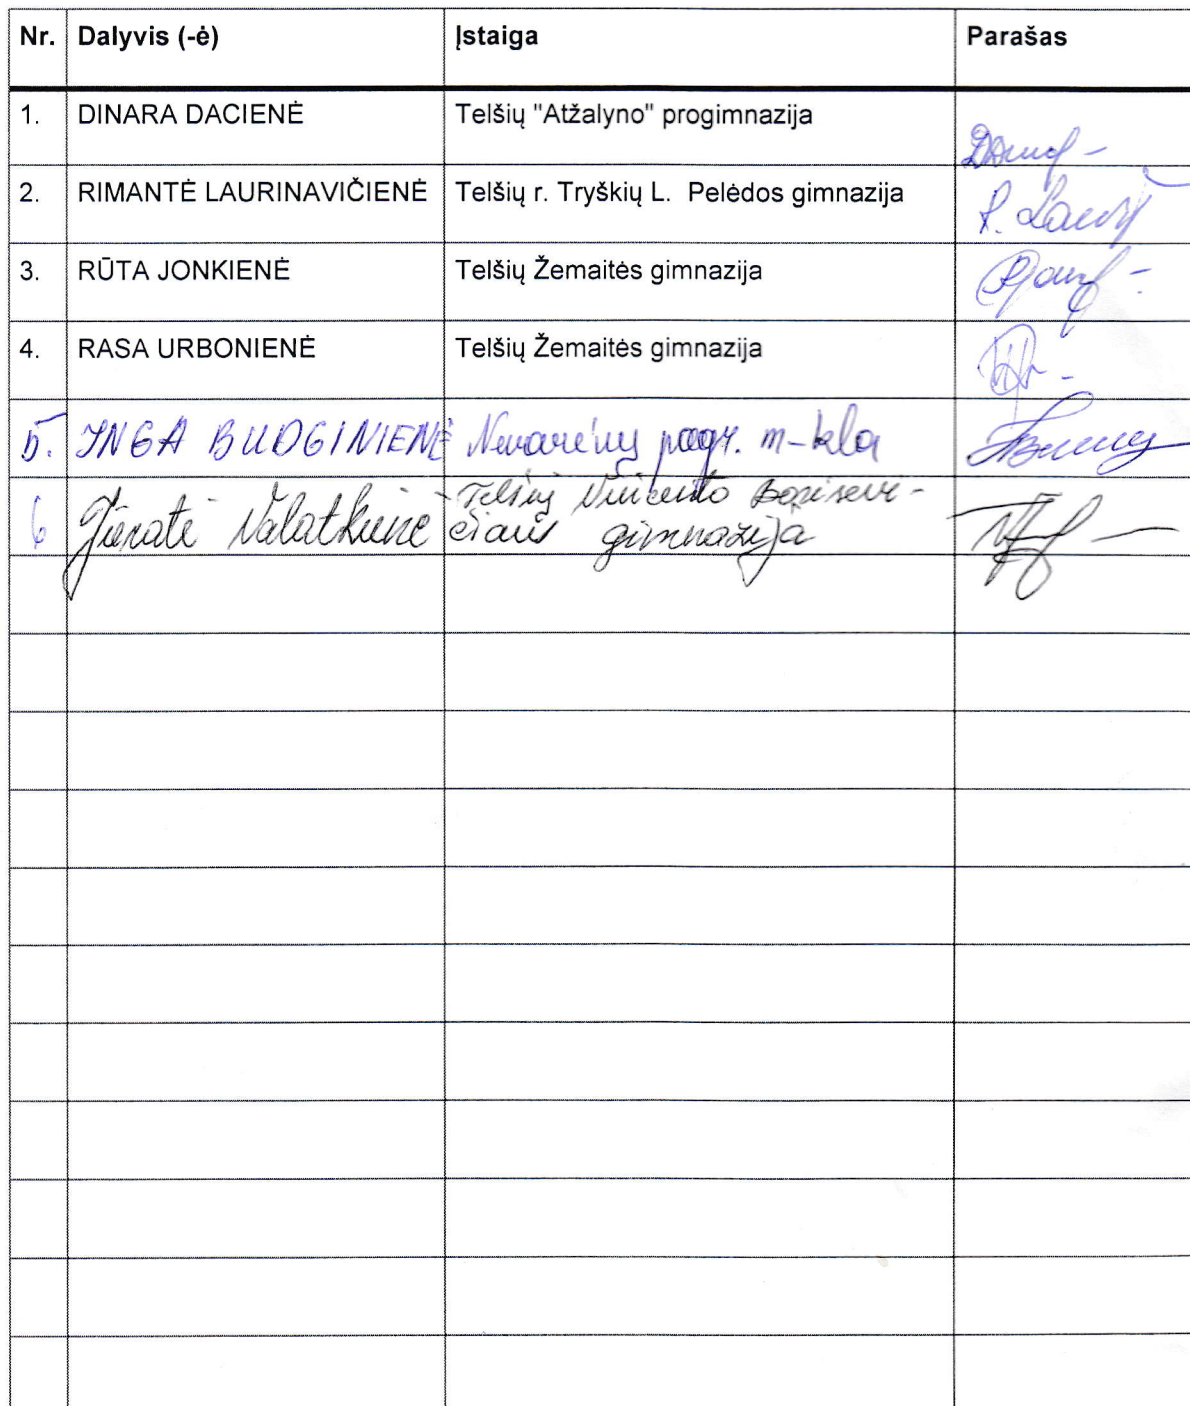 Nr. Dalyvis (-ė) Įstaiga Parašas
1. DINARA DACIENĖ Telšių "Atžalyno" progimnazija
2. RIMANTĖ LAURINAVIČIENĖ Telšių r. Tryškių L. Pelėdos gimnazija
3. RŪTA JONKIENĖ Telšių Žemaitės gimnazija
4. RASA URBONIENĖ Telšių Žemaitės gimnazija
5. INGA BUDGINIENĖ Nevarėnų pagr. m-kla
6 Jūratė Valatkienė Telšių Vincento Borisevi-
čiaus gimnazija